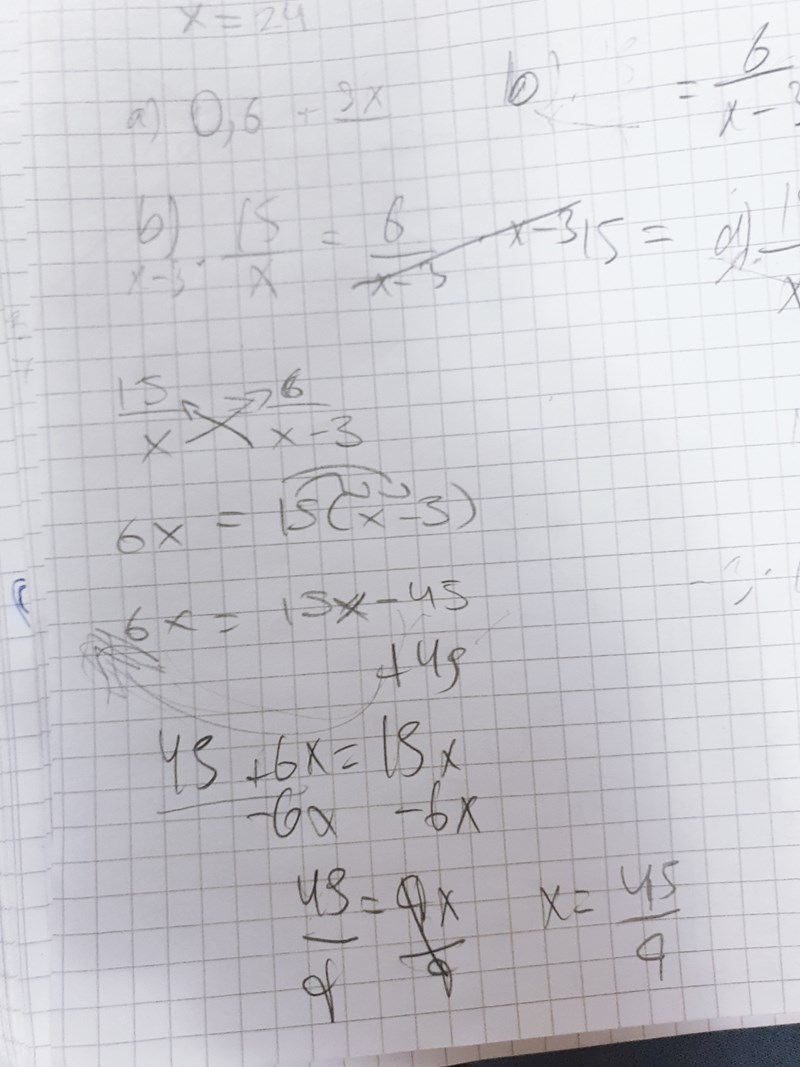 x = 24
a) 0,6 + 3x
b) = 6/x-3
b) x-3 · 15/x = 6/x-3 · x-3 15 = d)
15/x 6/x-3
6x = 15(x-3)
6x = 15x-45
+45
45 +6x = 15x
-6x -6x
45/9 = 9x/9 x = 45/9